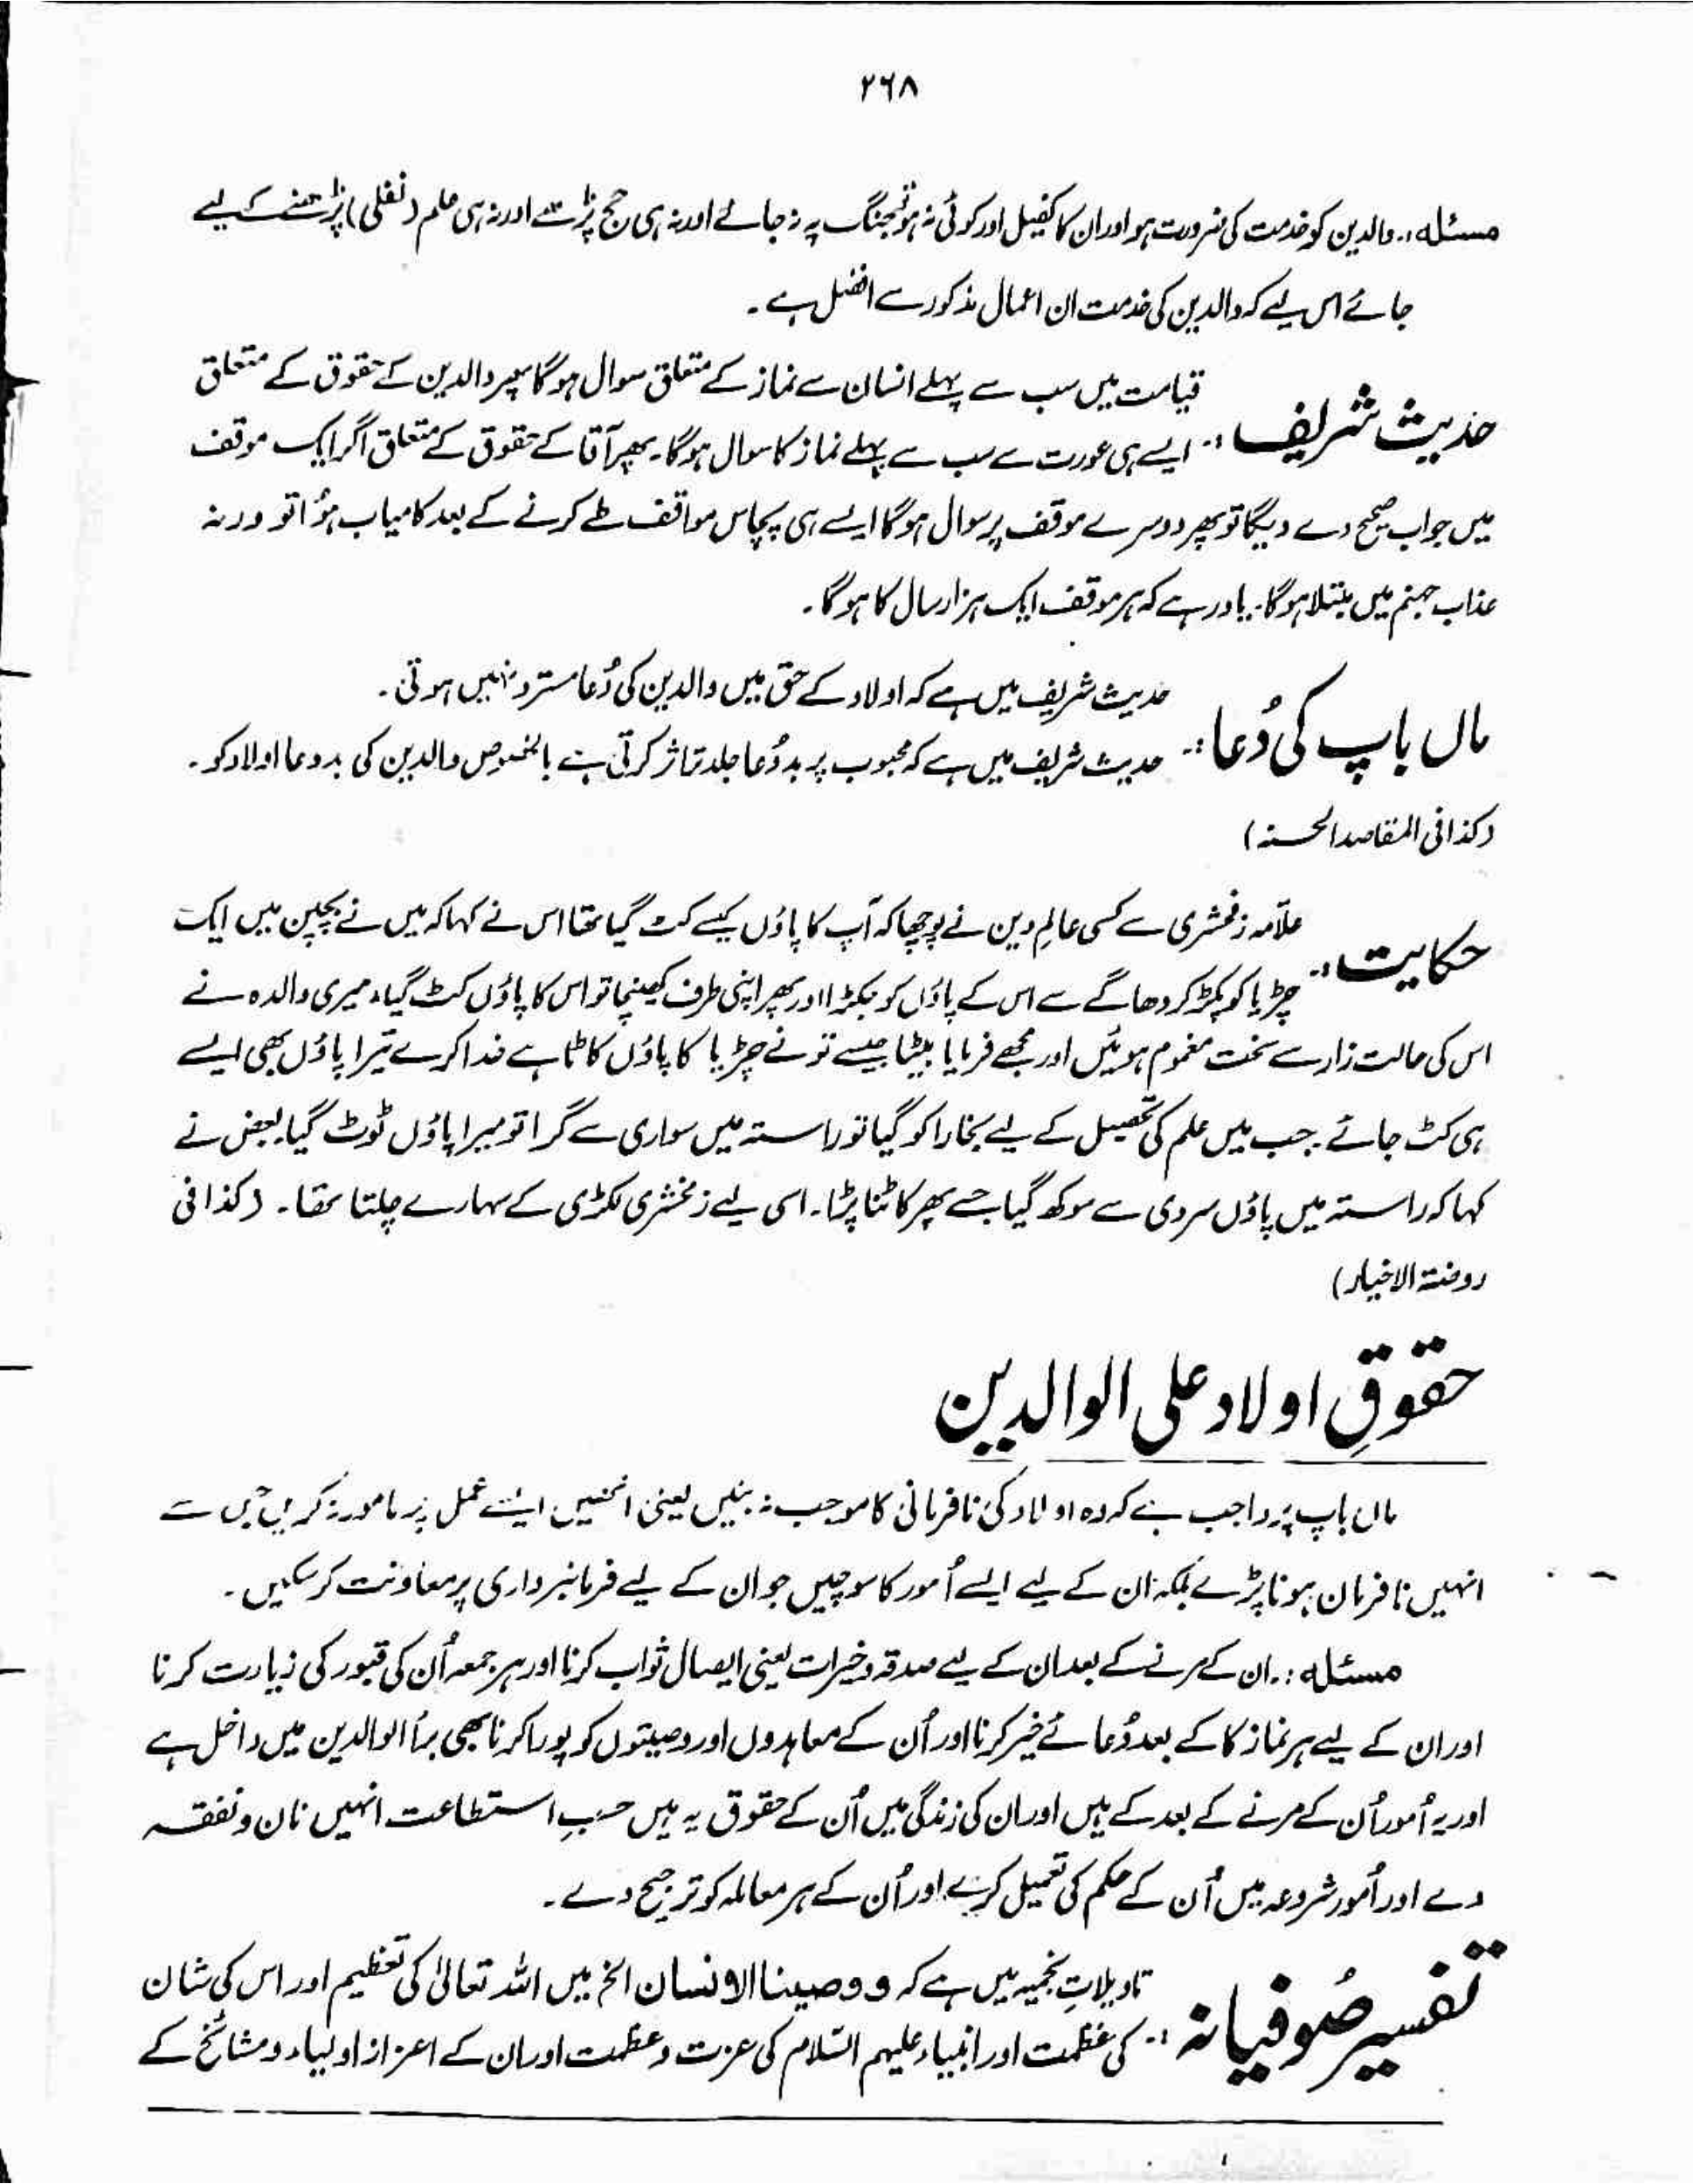 ۲۶۸
مسئلہ :۔ والدین کو خدمت کی ضرورت ہو اور ان کا کفیل اور کوئی نہ ہو تو جنگ پہ نہ جائے اور نہ ہی حج پڑھے اور نہ ہی علم (نفلی) پڑھنے کے لیے
جائے اس لیے کہ والدین کی خدمت ان اعمال مذکور سے افضل ہے ۔
حدیث شریف :۔ قیامت میں سب سے پہلے انسان سے نماز کے متعلق سوال ہوگا پھر والدین کے حقوق کے متعلق
ایسے ہی عورت سے سب سے پہلے نماز کا سوال ہوگا۔ پھر آقا کے حقوق کے متعلق اگر ایک موقف
میں جواب صحیح دے دیگا تو پھر دوسرے موقف پر سوال ہوگا ایسے ہی پچاس مواقف طے کرنے کے بعد کامیاب ہوُا تو ورنہ
عذاب جہنم میں مبتلا ہوگا۔ یاد رہے کہ ہر موقف ایک ہزار سال کا ہوگا ۔
ماں باپ کی دُعا :۔ حدیث شریف میں ہے کہ اولاد کے حق میں والدین کی دُعا مسترد نہیں ہوتی ۔
حدیث شریف میں ہے کہ محبوب پر بددُعا جلد تاثر کرتی ہے بالخصوص والدین کی بددعا اولاد کو ۔
(کذا فی المقاصد الحسنہ)
حکایت :۔ علاّمہ زمخشری سے کسی عالمِ دین نے پوچھا کہ آپ کا پاؤں کیسے کٹ گیا تھا اس نے کہا کہ میں نے بچپن میں ایک
چڑیا کو پکڑ کر دھاگے سے اس کے پاؤں کو جکڑا اور پھر اپنی طرف کھینچا تو اس کا پاؤں کٹ گیا، میری والدہ نے
اس کی حالت زار سے سخت مغموم ہوئیں اور مجھے فرمایا بیٹا جیسے تو نے چڑیا کا پاؤں کاٹا ہے خدا کرے تیرا پاؤں بھی ایسے
ہی کٹ جائے ۔ جب میں علم کی تحصیل کے لیے بخارا کو گیا تو راستہ میں سواری سے گرا تو میرا پاؤں ٹوٹ گیا۔ بعض نے
کہا کہ راستہ میں پاؤں سردی سے سوکھ گیا جسے پھر کاٹنا پڑا۔ اسی لیے زمخشری لکڑی کے سہارے چلتا تھا۔ (کذا فی
روضۃ الاخیار)
حقوقِ اولاد علی الوالدین
ماں باپ پر واجب ہے کہ وہ اولاد کی نافرمانی کا موجب نہ بنیں یعنی انھیں ایسے عمل پر مامور نہ کریں جس سے
انہیں نافرمان ہونا پڑے بلکہ ان کے لیے ایسے اُمور کا سوچیں جو ان کے لیے فرمانبرداری پر معاونت کر سکیں ۔
مسئلہ :۔ ان کے مرنے کے بعد ان کے لیے صدقہ و خیرات یعنی ایصال ثواب کرنا اور ہر جمعہ اُن کی قبور کی زیارت کرنا
اور ان کے لیے ہر نماز کا کے بعد دُعائے خیر کرنا اور اُن کے معاہدوں اور وصیتوں کو پورا کرنا بھی برأ الوالدین میں داخل ہے
اور یہ اُمور اُن کے مرنے کے بعد کے ہیں اور ان کی زندگی میں اُن کے حقوق یہ ہیں حسبِ استطاعت انہیں نان و نفقہ
دے اور اُمور شروعہ میں اُن کے حکم کی تعمیل کرے اور اُن کے ہر معاملہ کو ترجیح دے ۔
تفسیر صُوفیانہ :۔ تاویلاتِ نجمیہ میں ہے کہ و وصینا الانسان الخ میں اللہ تعالیٰ کی تعظیم اور اس کی شان
کی عظمت اور انبیاء علیہم السّلام کی عزت و عظمت اور ان کے اعزاز اولیاء و مشائخ کے